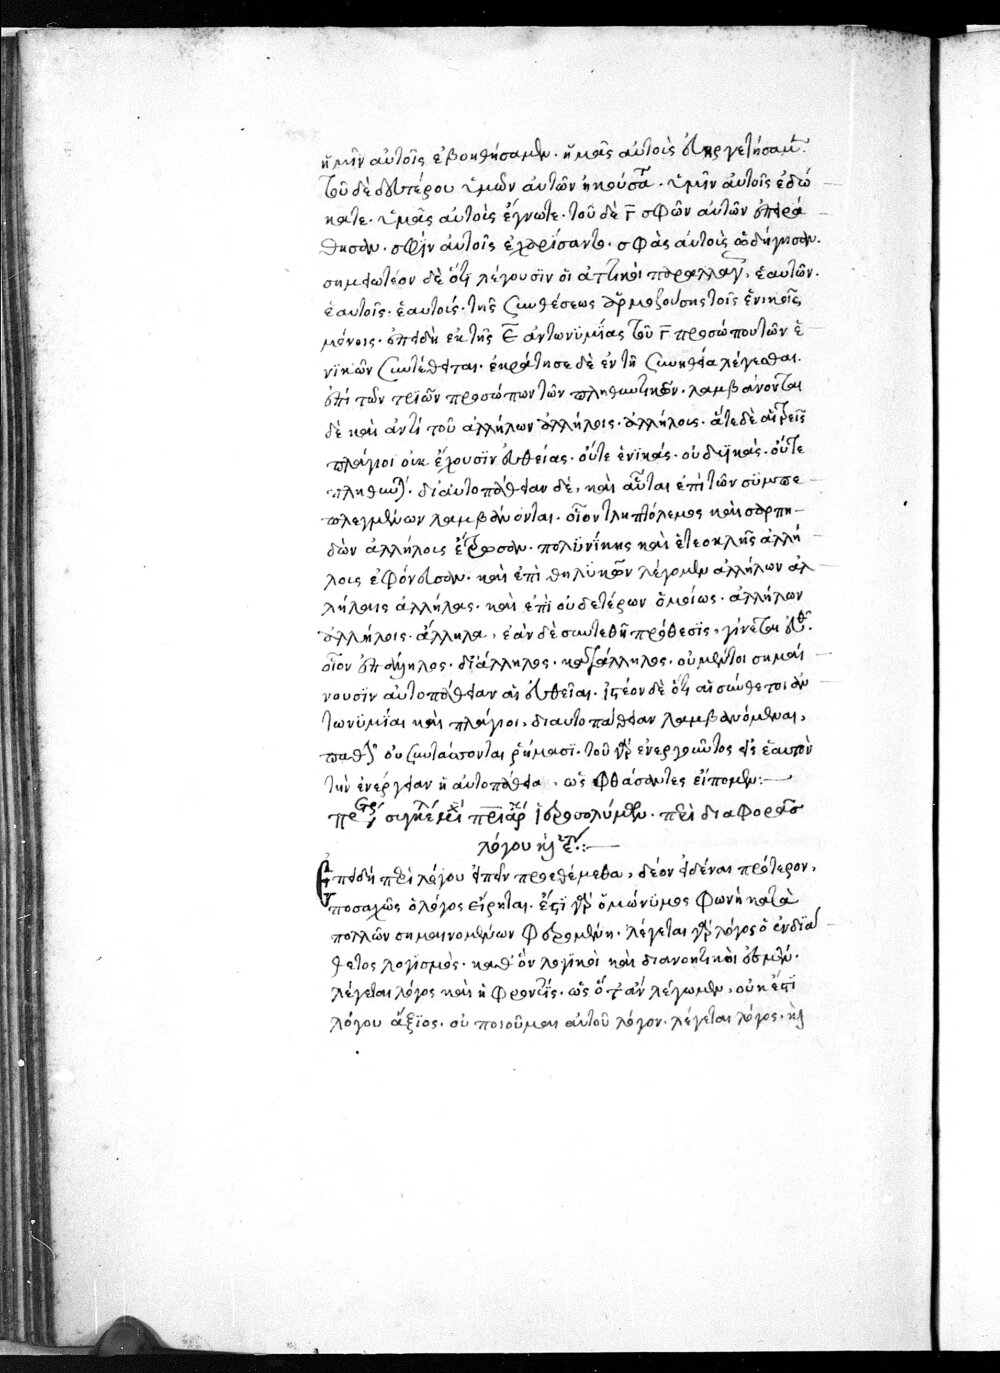 ἡμῖν αὐτοῖς ἐβοηθήσαμεν. ἡμᾶς αὐτοὺς εὐηργετήσαμ.
τοῦ δὲ δευτέρου ὑμῶν αὐτῶν ἠκούσατε. ὑμῖν αὐτοῖς ἐδώ
κατε. ὑμᾶς αὐτοὺς ἔγνωτε. τοῦ δὲ γ̅ σφῶν αὐτῶν ἐπειρά
θησαν. σφὶν αὐτοῖς ἐχαρίσαντο. σφᾶς αὐτοὺς ὡδήγησαν.
σημειωτέον δὲ ὅτι λέγουσιν οἱ ἀττικοὶ παραλλαγ, ἑαυτῶν.
ἑαυτοῖς. ἑαυτούς. τῆς συνθέσεως ἁρμοζούσης τοῖς ἑνικοῖς
μόνοις. ἐπειδὴ ἐκ τῆς ε̅ ἀντωνυμίας τοῦ γ̅ προσώπου τῶν ἑ
νικῶν συντέθειται. ἐκράτησε δὲ ἐν τῇ συνηθεία λέγεσθαι.
ἐπὶ τῶν τριῶν προσώπων τῶν πληθυντικῶν. λαμβάνονται
δὲ καὶ ἀντὶ τοῦ ἀλλήλων ἀλλήλοις. ἀλλήλους. ἅτε δὲ αἱ τρεῖς
πλάγιοι οὐκ ἔχουσιν εὐθείας. οὔτε ἑνικάς. οὐ δυϊκάς. οὔτε
πληθυν. δι αὐτοπάθειαν δὲ, καὶ αὗται ἐπὶ τῶν συμπε
πλεγμένων λαμβάνονται. οἷον τληπόλεμος καὶ σαρπη
δὼν ἀλλήλους ἔτρωσαν. πολυνίκης καὶ ἐτεοκλῆς ἀλλή
λους ἐφόνευσαν. καὶ ἐπὶ θηλυκῶν λέγομεν ἀλλήλων ἀλ
λήλαις ἀλλήλας. καὶ ἐπὶ οὐδετέρων ὁμοίως. ἀλλήλων
ἀλλήλοις. ἄλληλα, ἐὰν δὲ συντεθῆ πρόθεσις, γίνεται εὐθ.
οἷον ἐπάλληλος. διάλληλος. κατάλληλος. οὐ μέντοι σημαί
νουσιν αὐτοπάθειαν αἱ εὐθεῖαι. ἰστέον δὲ ὅτι αἱ σύνθετοι ἀν
τωνυμίαι καὶ πλάγιοι, δι αὐτοπάθειαν λαμβανόμεναι,
παθ οὐ συντάσσονται ῥήμασι. τοῦ γὰρ ἐνεργοῦντος εἰς ἑαυτὸν
τὴν ἐνέργειαν ἡ αὐτοπάθεια, ὡς φθάσαντες εἴπομεν:
ἱεροσολύμων. περὶ διαφορᾶς
λόγου
Ἐπειδὴ περὶ λόγου εἰπεῖν προεθέμεθα, δέον εἰδέναι πρότερον,
ποσαχῶς ὁ λόγος εἴρηται. ἔστι γὰρ ὁμώνυμος φωνὴ κατὰ
πολλῶν σημαινομένων φερομένη. λέγεται γὰρ λόγος ὁ ἐνδιά
θετος λογισμός. καθ ὃν λογικοὶ καὶ διανοητικοὶ ἐσμέν.
λέγεται λόγος καὶ ἡ φροντίς. ὡς ὅταν λέγωμεν, οὐκ ἔστι
λόγου ἄξιος. οὐ ποιοῦμαι αὐτοῦ λόγον. λέγεται λόγος. καὶ